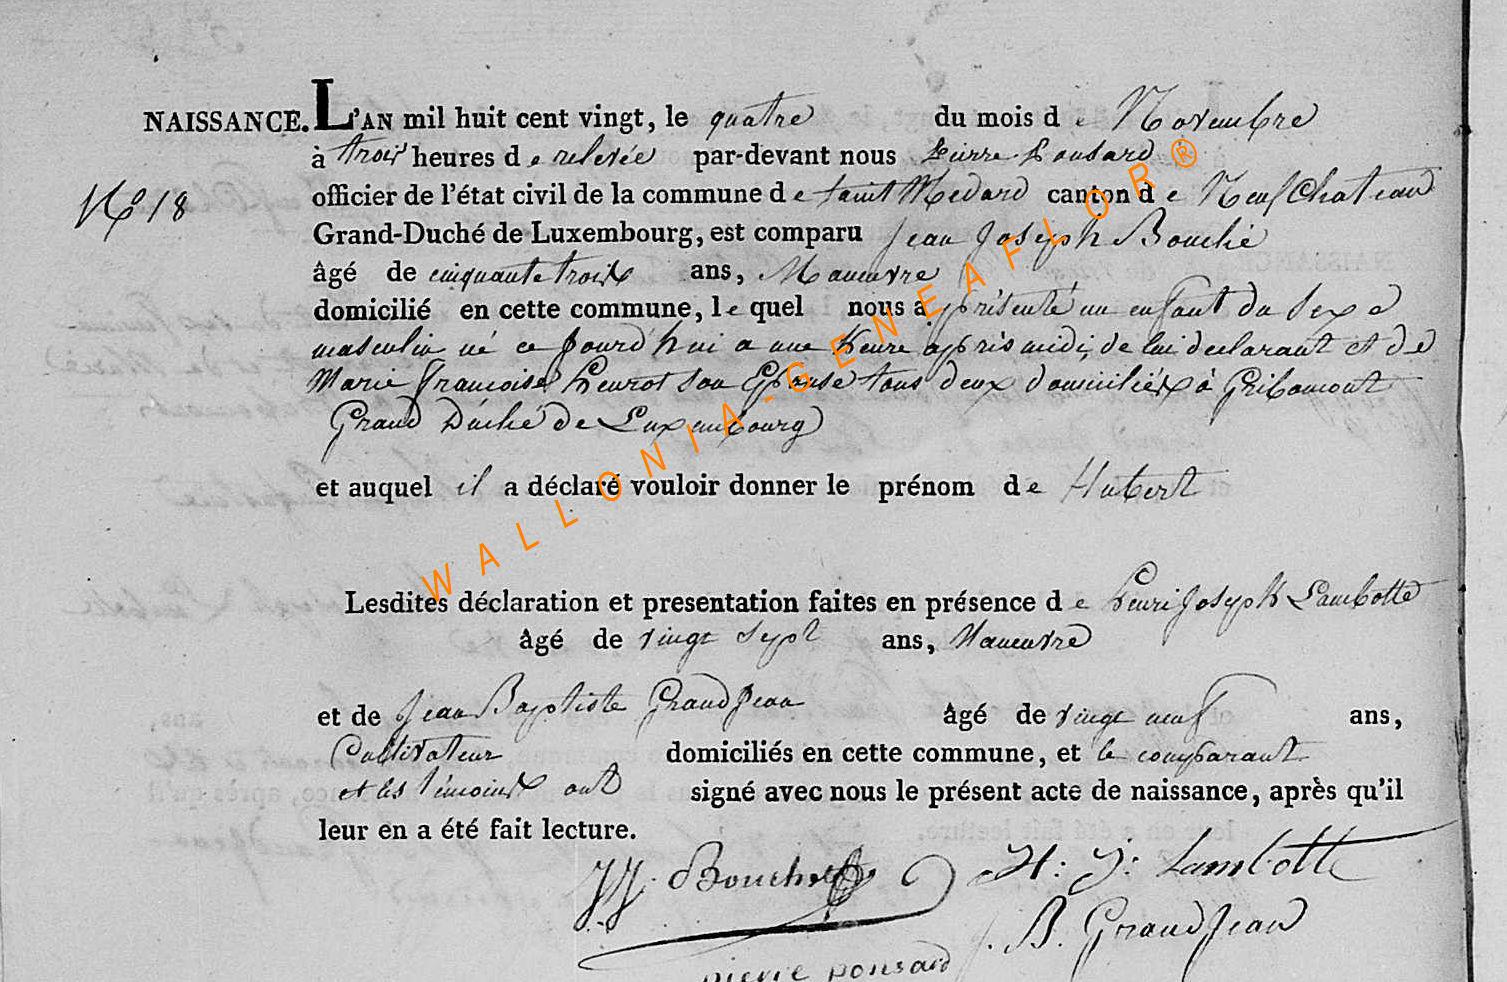 NAISSANCE. L'AN mil huit cent vingt, le quatre du mois de Novembre
à trois heures de relevée par-devant nous Pierre Ponsard
N° 18
officier de l'état civil de la commune de saint Medard canton de Neufchateau
Grand-Duché de Luxembourg, est comparu Jean Joseph Bouché
âgé de cinquante trois ans, Maneuvre
domicilié en cette commune, le quel nous a présenté un enfant du sexe
masculin né ce jourd'hui a une heure après midi, de lui declarant et de
Marie françoise henrot son Epouse tous deux domiciliés à Gribomont
Grand Duché de Luxembourg
et auquel il a déclaré vouloir donner le prénom de Hubert
Lesdites déclaration et presentation faites en présence de henri Joseph Lambotte
âgé de vingt sept ans, Maneuvre
et de Jean Baptiste GrandJean âgé de vingt neuf ans,
Cultivateur domiciliés en cette commune, et le comparant
et les témoins ont signé avec nous le présent acte de naissance, après qu'il
leur en a été fait lecture.
JJ. Bouché H: J: Lambotte
J. B. GrandJean
pierre ponsard
WALLONIA-GENEAFLOR®